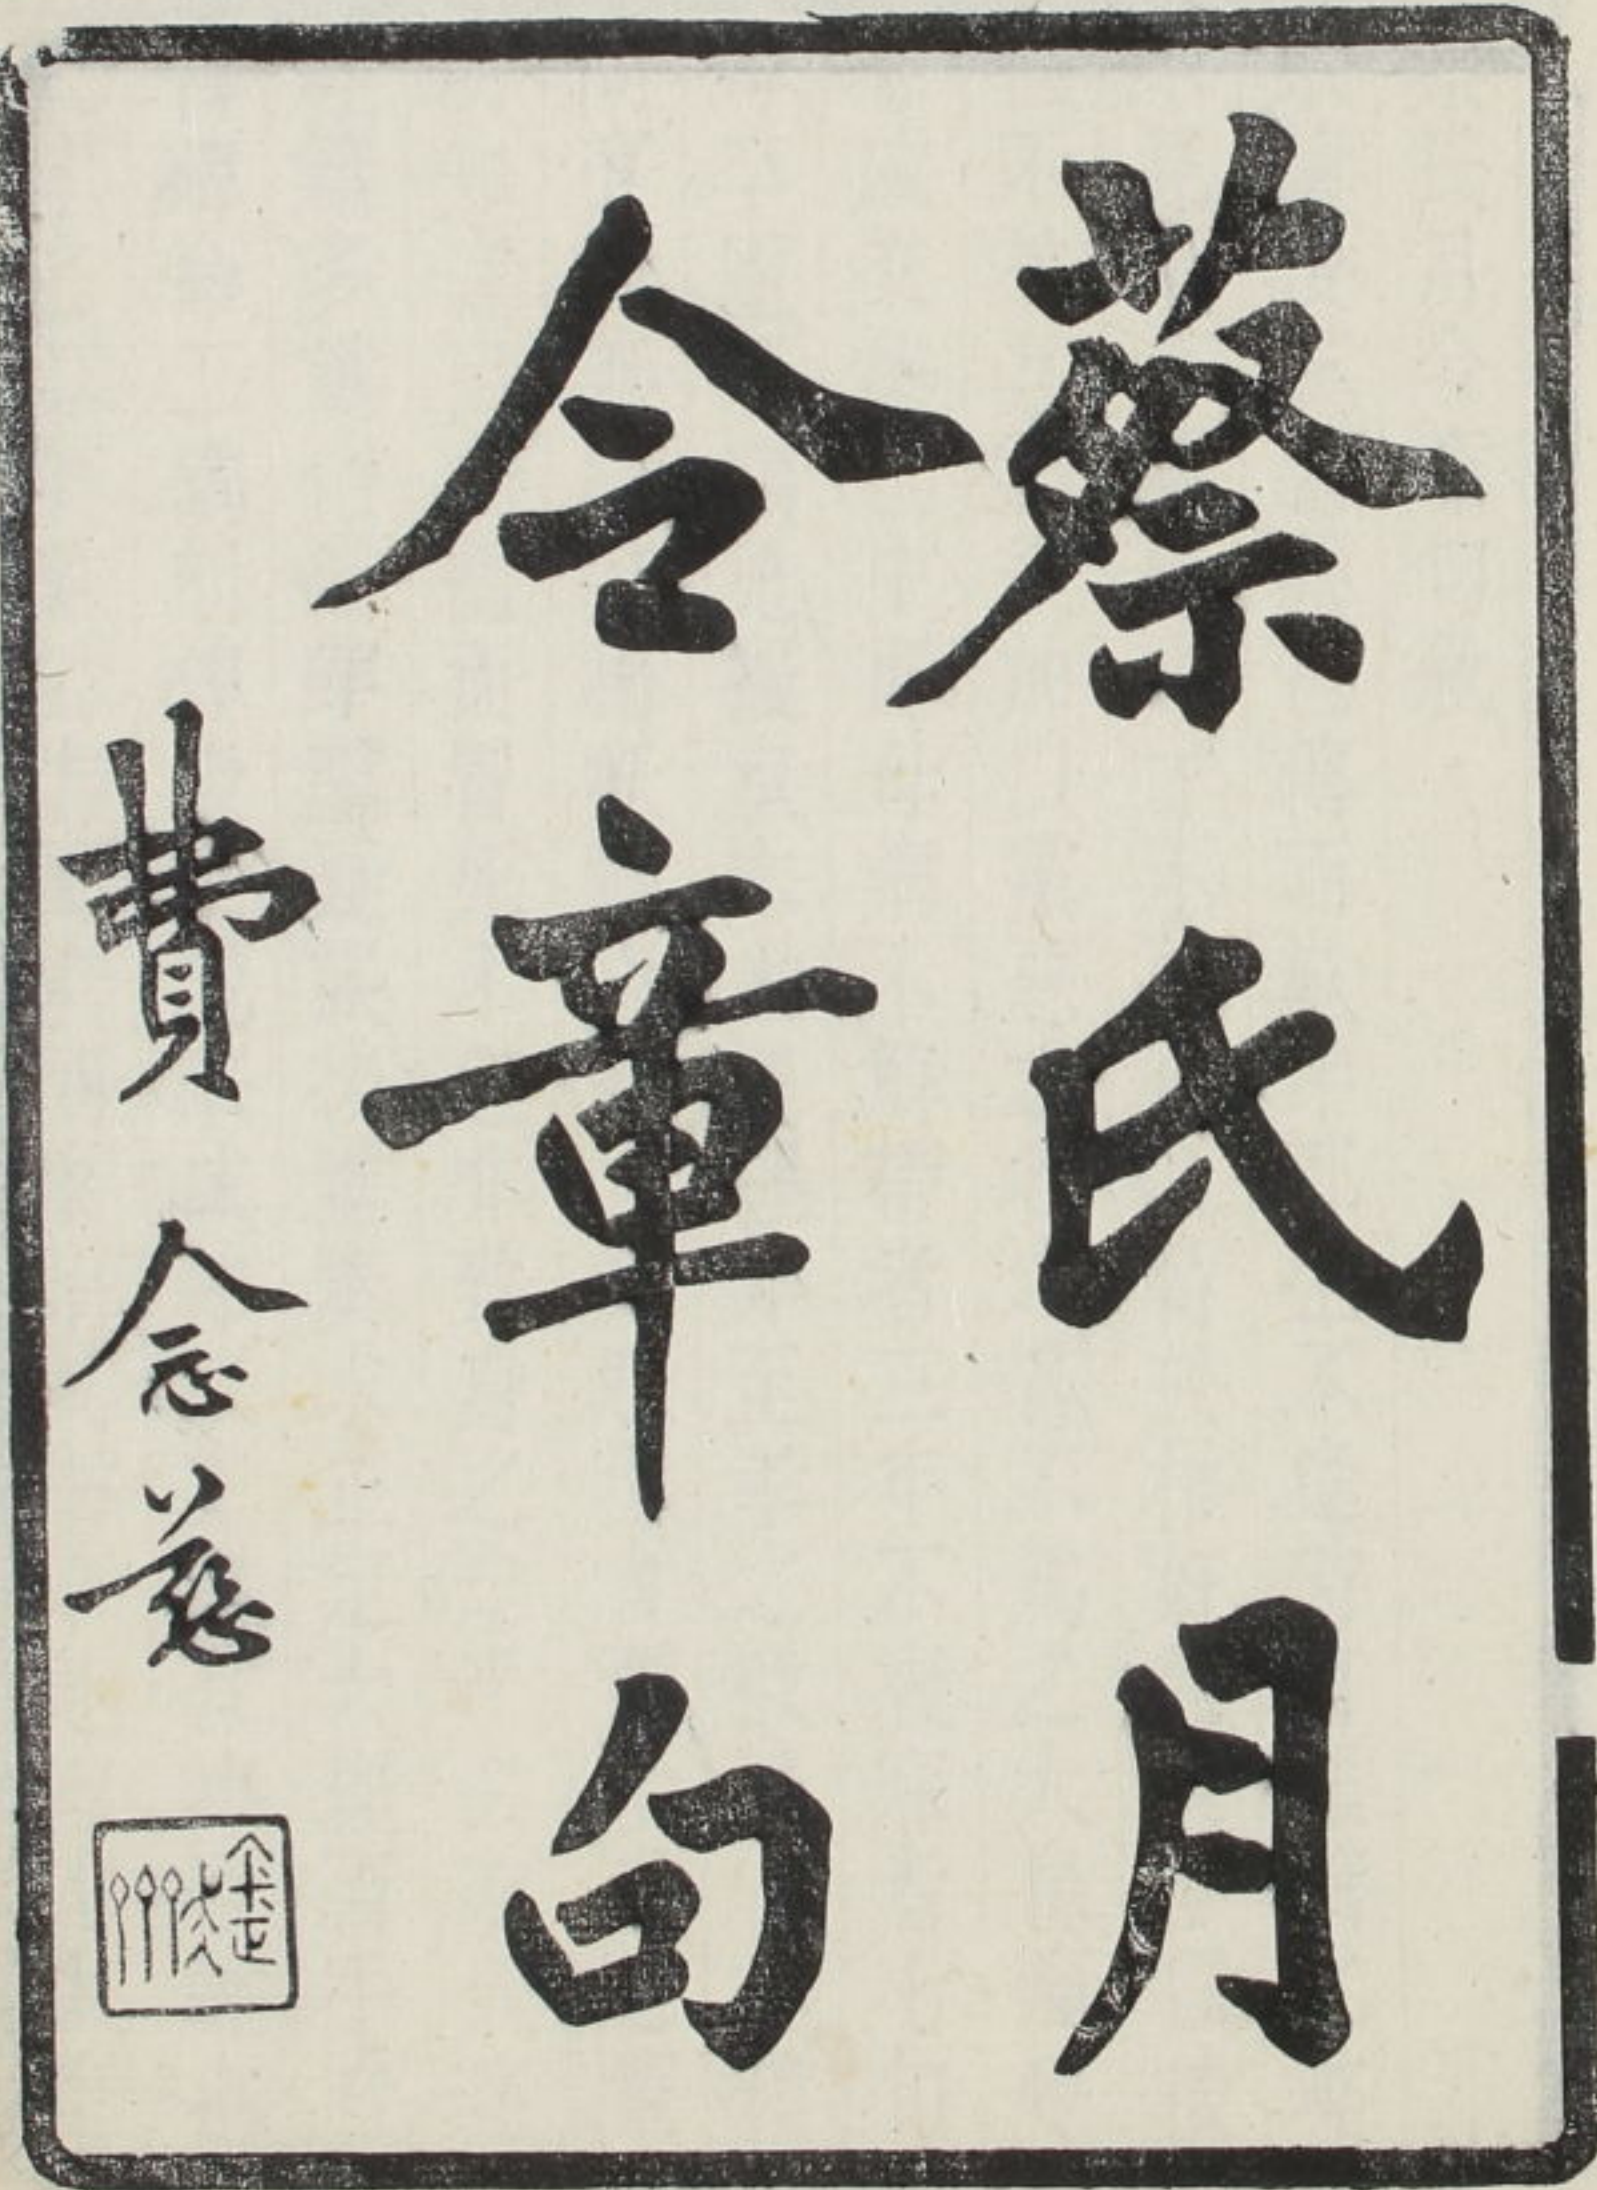 蔡氏月
令章句
費念慈